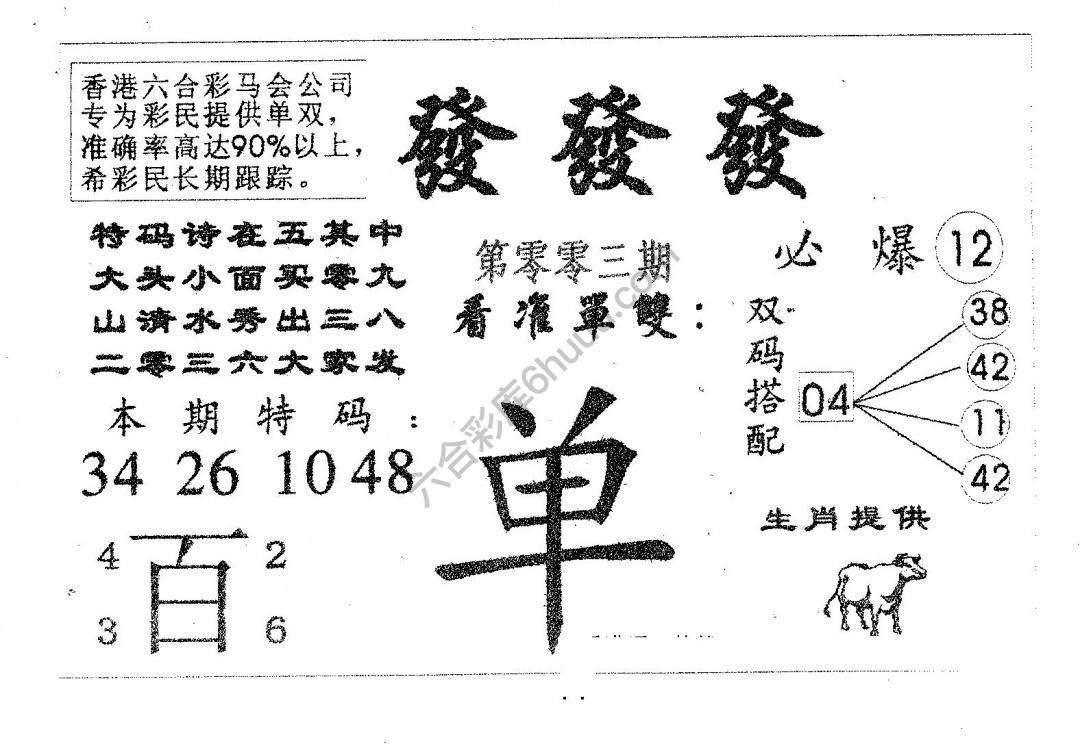 香港六合彩马会公司
专为彩民提供单双，
准确率高达90%以上，
希彩民长期跟踪。
發發發
特码诗在五其中
大头小面买零九
山清水秀出三八
二零三六大家发
第零零三期
看准單雙：
必爆 12
双码搭配
04
38
42
11
42
本期特码：
34 26 10 48
单
4 百 2
3 6
生肖提供
六合彩库6huu.com